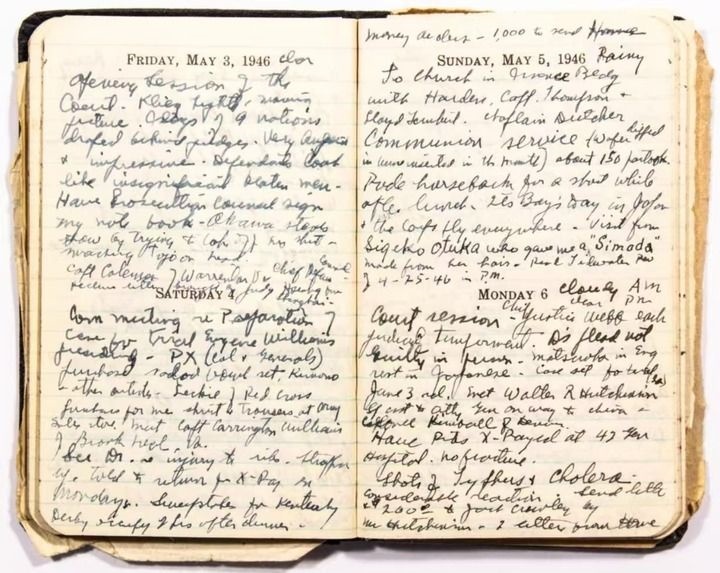 FRIDAY, MAY 3, 1946 clear
Opening Session of the
Court. Klieg lights, moving
picture. Flags of 9 nations
draped behind judges. Very
& impressive. Defendants look
like insignificant beaten men -
Have Prosecution Counsel sign
my note book - Okawa steals
show by trying to take off his shirt -
smacking Tojo on head.
Capt Coleman of Warrenton Va Chief Defense Counsel
receive letter brought by Judy
SATURDAY 4
Com meeting re Preparation of
case for trial Eugene Williams
presiding - PX (Col & Generals)
purchase salad bowl set, Kimono
& other articles. Leckie of Red Cross
purchase for me shirt & trousers at Army
Sales store. Met Capt Carrington Williams
of Brook Neal, Va.
See Dr. re injury to rib. Strapped
up. Told to return for X-Ray on
Monday. Sweepstakes for Kentucky
Derby after dinner.
money orders - 1,000 to send Home
SUNDAY, MAY 5, 1946 Rainy
To Church in Bldg
with Hardin, Capt. Thompson &
Lloyd. Chaplain
Communion service (wafer dipped
in wine inserted in the mouth) about 150 partook.
Rode horseback for a short while
after lunch. Its Boy's Day in Japan
& the Carp fly everywhere - Visit from
Sigeko Otuka who gave me a "Simoda"
made from her hair - Read Tidewater Rev
of 4-25-46 in P.M.
MONDAY 6 cloudy AM
clear P.M.
Court session Chief Justice Webb each
judicial temperament. D's plead not
guilty in person - Matsuoka in Eng
rest in Japanese. Case set for trial
June 3rd. Met Walter R Hutchinson
Asst to Atty Gen on way to China &
Colonel Kimball of
Have Ribs X-Rayed at 42 Gen
Hospital. No fracture.
Shots of Typhus & Cholera.
Considerable reaction. Send letter
& $200 to Crowley by
Mr Hutchinson - 2 letters from Home